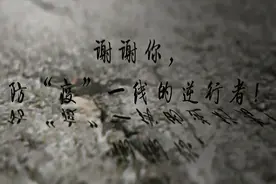 谢谢你，
防“疫”一线的逆行者！